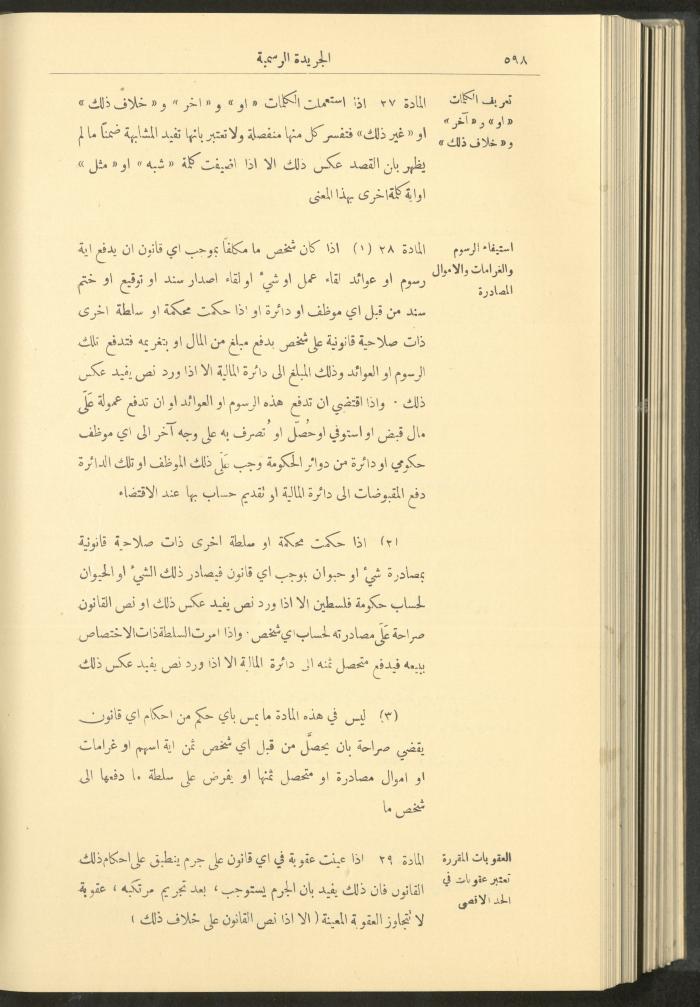 ٥٩٨
الجريدة الرسمية
تعريف الكلمات
« او » و « آخر »
و « خلاف ذلك »
المادة ٢٧ اذا استعملت الكلمات « او » و « اخر » و « خلاف ذلك »
او « غير ذلك » فتفسر كل منها منفصلة ولا تعتبر بانها تفيد المشابهة ضمنًا ما لم
يظهر بان القصد عكس ذلك الا اذا اضيفت كلمة « شبه » او « مثل »
او اية كلمة اخرى بهذا المعنى
استيفاء الرسوم
والغرامات والاموال
المصادرة
المادة ٢٨ (١) اذا كان شخص ما مكلفًا بموجب اي قانون ان يدفع اية
رسوم او عوائد لقاء عمل او شيءٍ او لقاء اصدار سند او توقيع او ختم
سند من قبل اي موظف او دائرة او اذا حكمت محكمة او سلطة اخرى
ذات صلاحية قانونية على شخص بدفع مبلغ من المال او بتغريمه فتدفع تلك
الرسوم او العوائد وذلك المبلغ الى دائرة المالية الا اذا ورد نص يفيد عكس
ذلك . واذا اقتضي ان تدفع هذه الرسوم او العوائد او ان تدفع عمولة عَلَى
مال قبض او استوفي او حُصّل او تُصرف به على وجه آخر الى اي موظف
حكومي او دائرة من دوائر الحكومة وجب عَلَى ذلك الموظف او تلك الدائرة
دفع المقبوضات الى دائرة المالية او تقديم حساب بها عند الاقتضاء
(٢) اذا حكمت محكمة او سلطة اخرى ذات صلاحية قانونية
بمصادرة شيءٍ او حيوان بموجب اي قانون فيصادر ذلك الشيءُ او الحيوان
لحساب حكومة فلسطين الا اذا ورد نص يفيد عكس ذلك او نص القانون
صراحة عَلَى مصادرته لحساب اي شخص . واذا امرت السلطة ذات الاختصاص
ببيعه فيدفع متحصل ثمنه الى دائرة المالية الا اذا ورد نص يفيد عكس ذلك
(٣) ليس في هذه المادة ما يمس باي حكم من احكام اي قانون
يقضي صراحة بان يحصَّل من قبل اي شخص ثمن اية اسهم او غرامات
او اموال مصادرة او متحصل ثمنها او يفرض على سلطة ما دفعها الى
شخص ما
العقوبات المقررة
تعتبر عقوبات في
الحد الاقصى
المادة ٢٩ اذا عينت عقوبة في اي قانون على جرم ينطبق على احكام ذلك
القانون فان ذلك يفيد بان الجرم يستوجب ، بعد تجريم مرتكبه ، عقوبة
لا تتجاوز العقوبة المعينة ( الا اذا نص القانون على خلاف ذلك )